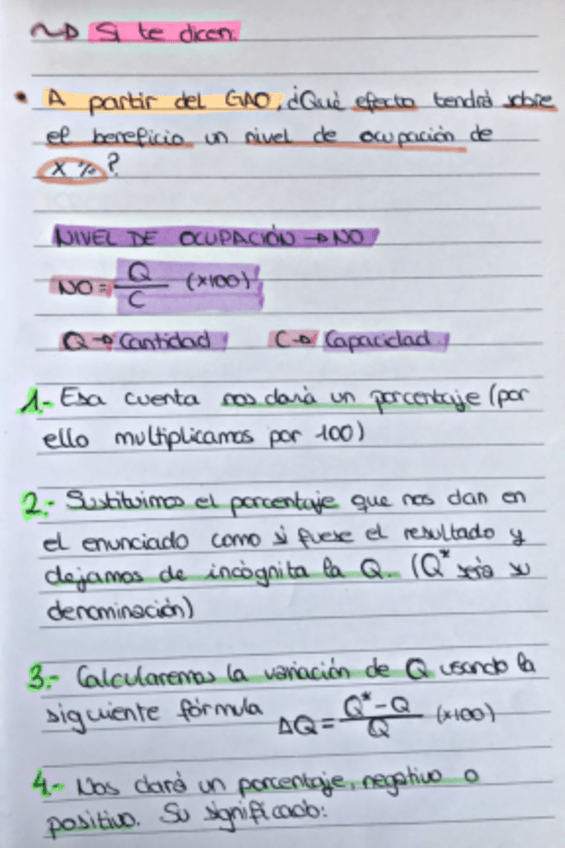 ~D Si te dicen:
• A partir del GAO, ¿Qué efecto tendrá sobre
el beneficio un nivel de ocupación de
X %?
NIVEL DE OCUPACIÓN → NO
NO = Q / C (x100)
Q → Cantidad C → Capacidad
1.- Esa cuenta nos dará un porcentaje (por
ello multiplicamos por 100)
2.- Sustituimos el porcentaje que nos dan en
el enunciado como si fuese el resultado y
dejamos de incógnita la Q. (Q* será su
denominación)
3.- Calcularemos la variación de Q usando la
siguiente fórmula ΔQ = Q* - Q / Q (x100)
4.- Nos dará un porcentaje, negativo o
positivo. Su significado: